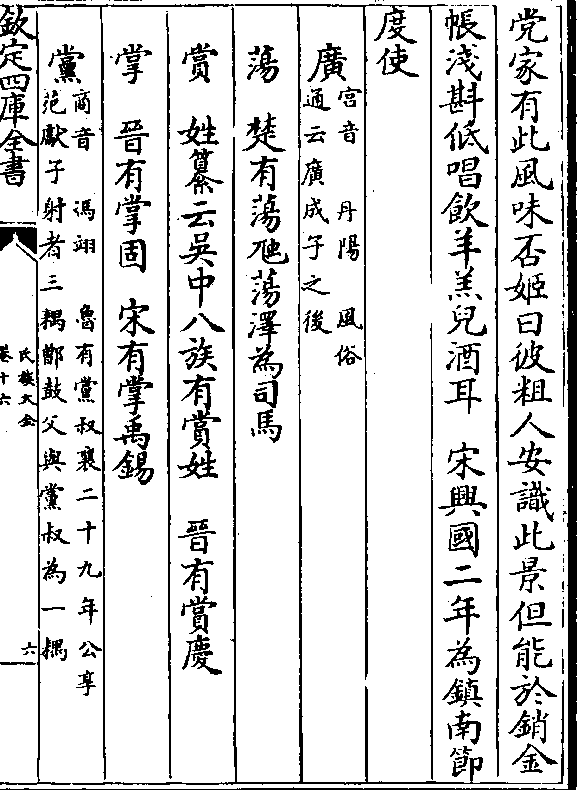 党家有此風味否姬曰彼粗人安識此景但能於銷金
帳淺斟低唱飲羊羔兒酒耳　宋興國二年為鎮南節
度使
廣　宫音　丹陽　風俗
通云廣成子之後
蕩　楚有蕩虺蕩澤為司馬
賞　姓纂云吳中八族有賞姓　晉有賞慶
掌　晉有掌固　宋有掌禹錫
黨　商音　馮翊　魯有黨叔襄二十九年公享
范獻子射者三耦鄫鼓父與黨叔為一耦
欽定四庫全書
氏族大全
卷十六
六